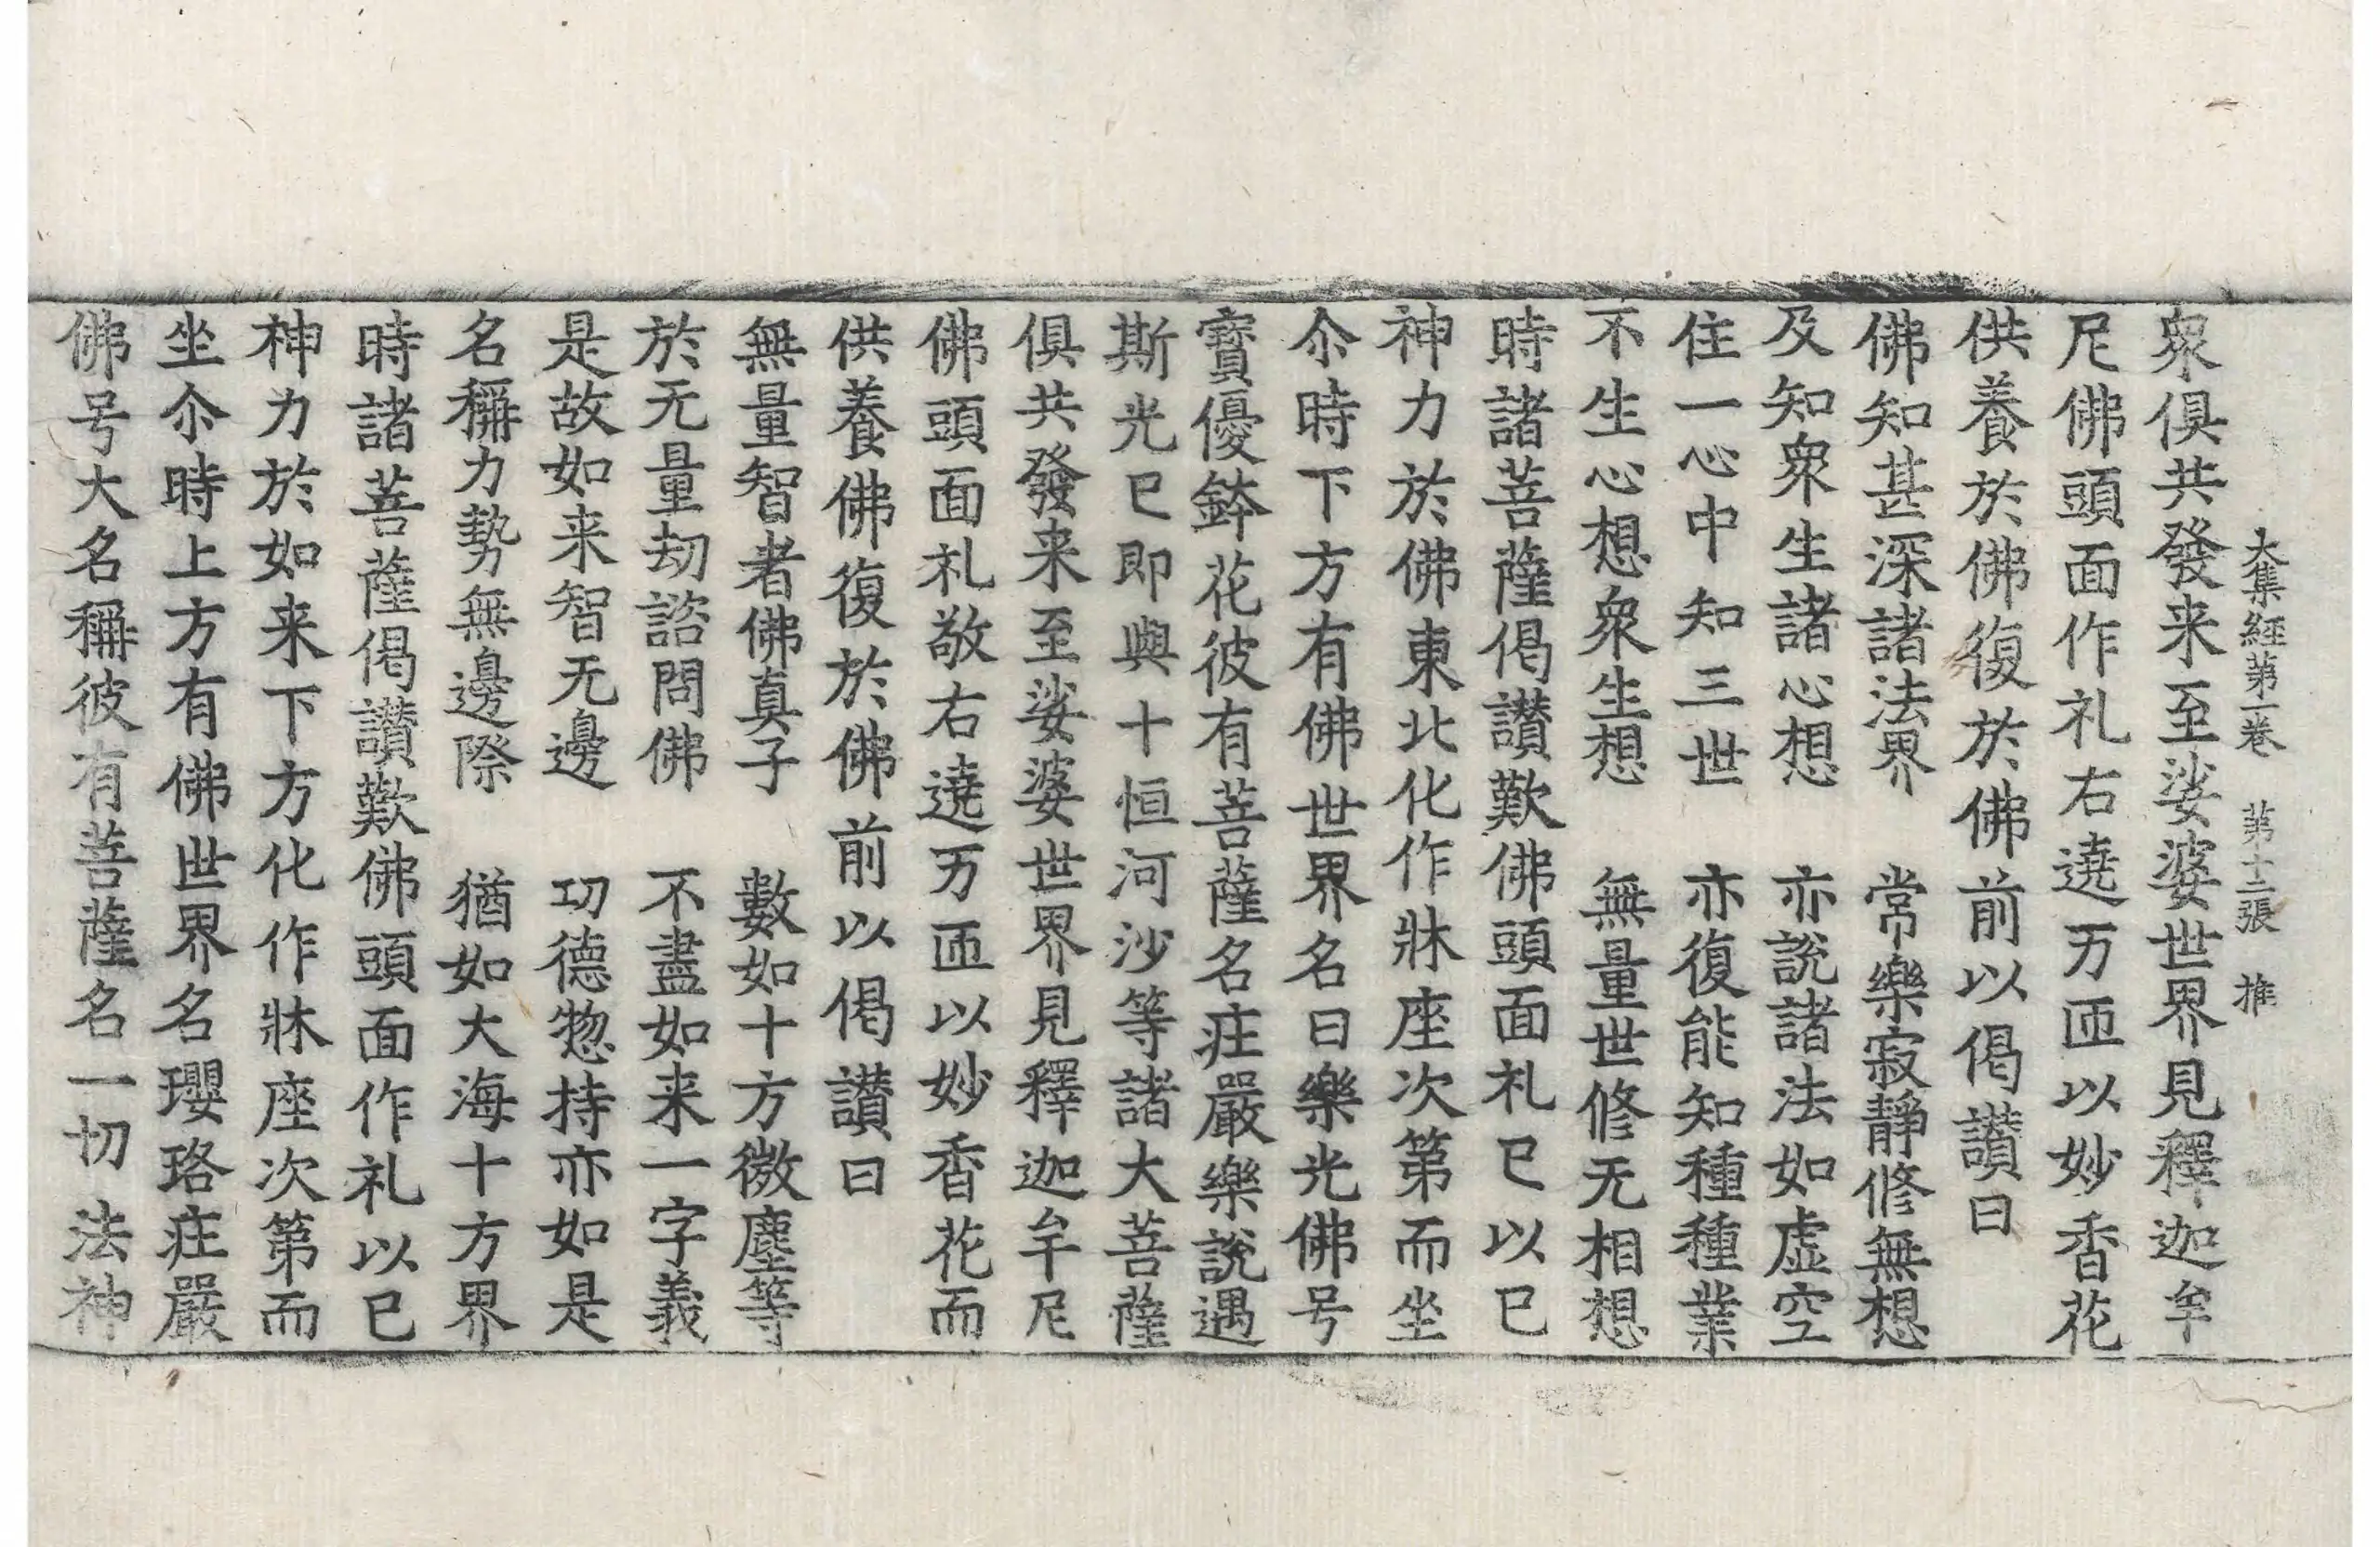 大集經第一卷 第十二張 推
衆俱共發来至娑婆世界見釋迦牟
尼佛頭面作礼右遶万匝以妙香花
供養於佛復於佛前以偈讃曰
佛知甚深諸法界 常樂寂靜修無想
及知衆生諸心想 亦說諸法如虚空
住一心中知三世 亦復能知種種業
不生心想衆生想 無量世修无相想
時諸菩薩偈讃歎佛頭面礼已以已
神力於佛東北化作牀座次第而坐
尒時下方有佛世界名曰樂光佛号
寶優鉢花彼有菩薩名疘嚴樂說遇
斯光已即與十恒河沙等諸大菩薩
俱共發来至娑婆世界見釋迦牟尼
佛頭面礼敬右遶万匝以妙香花而
供養佛復於佛前以偈讃曰
無量智者佛真子 數如十方微塵等
於无量劫諮問佛 不盡如来一字義
是故如来智无邊 功德惣持亦如是
名稱力勢無邊際 猶如大海十方界
時諸菩薩偈讃歎佛頭面作礼以已
神力於如来下方化作牀座次第而
坐尒時上方有佛世界名瓔珞疘嚴
佛号大名稱彼有菩薩名一切法神